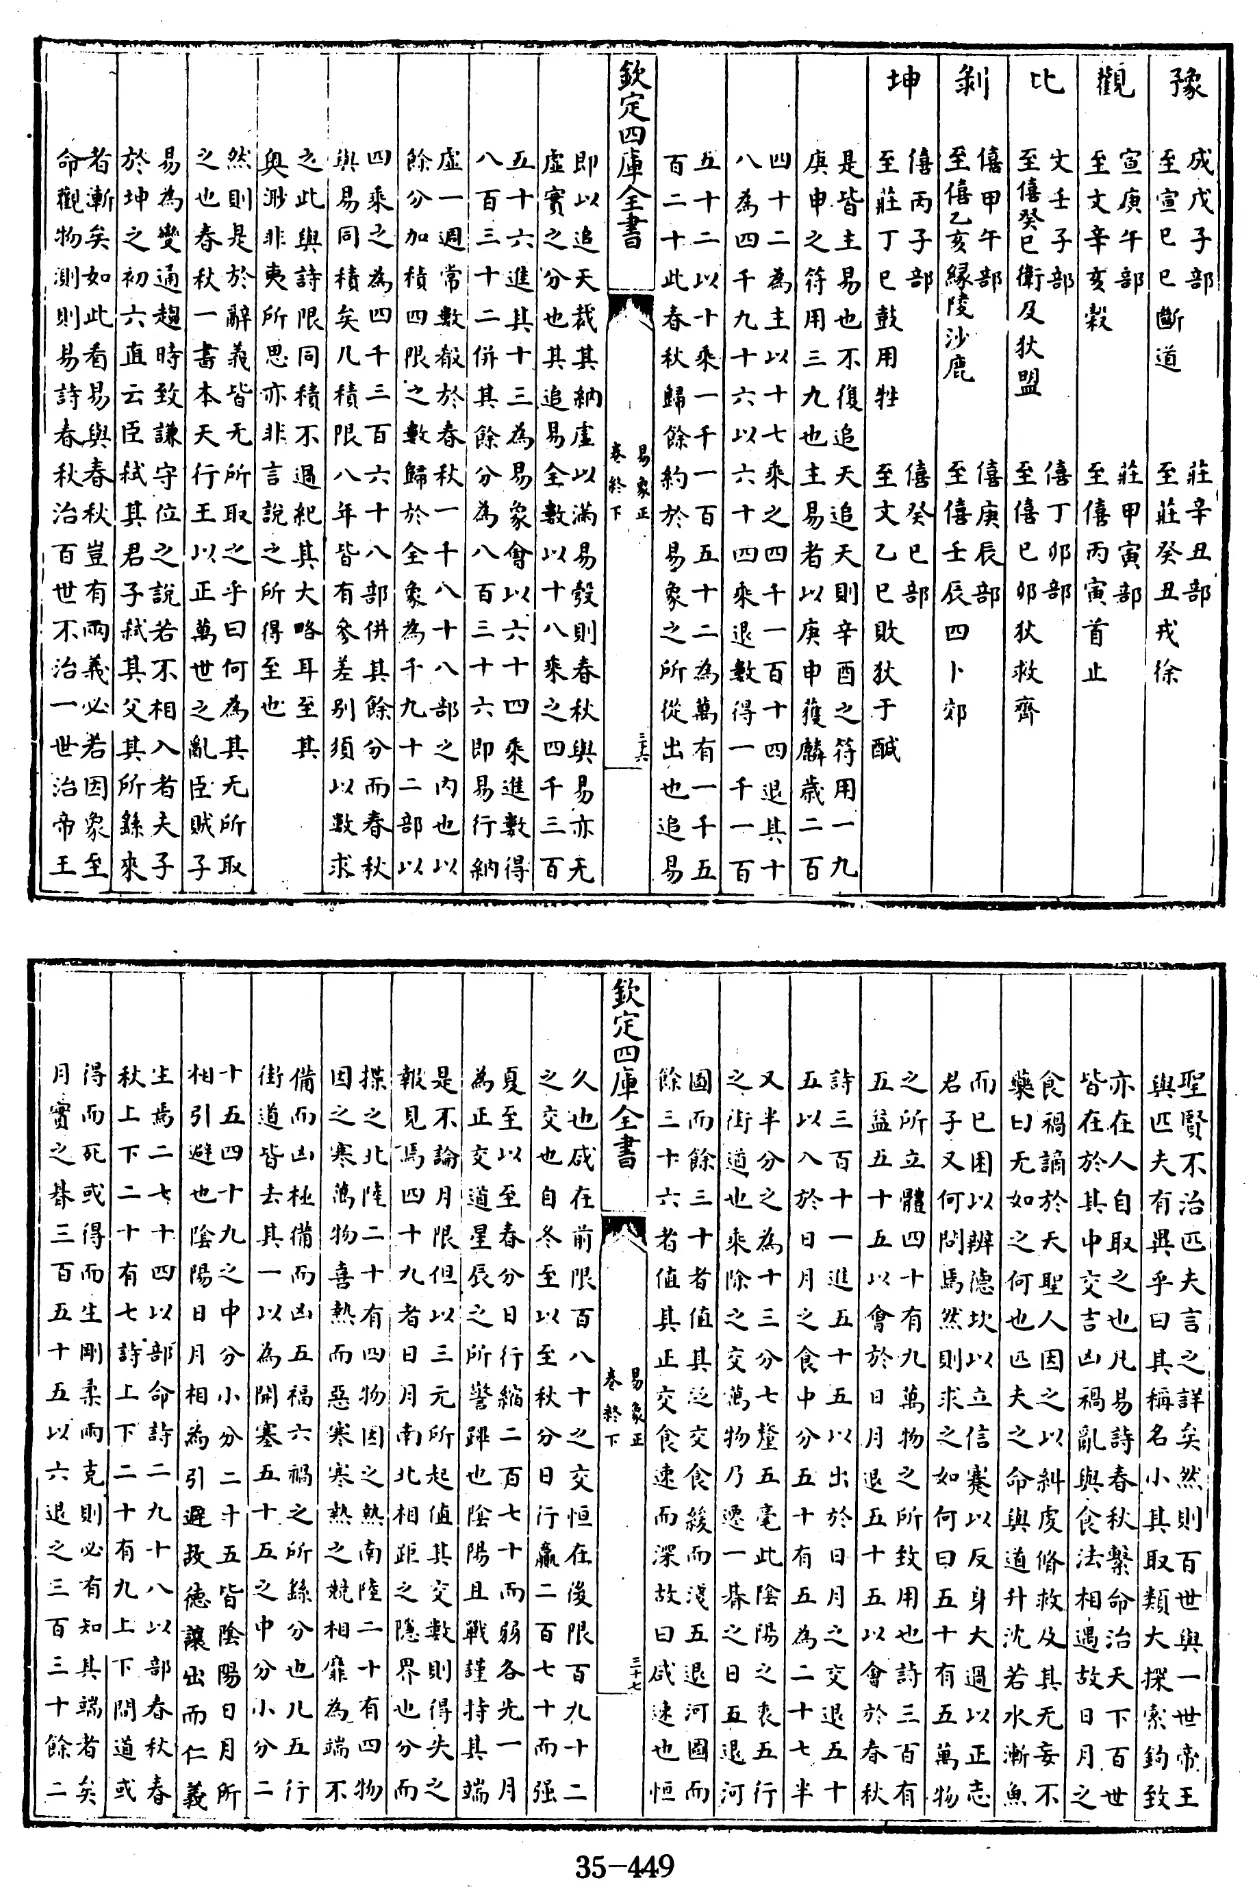 豫 成戊子部 莊辛丑部
至宣巳巳斷道 至莊癸丑戎徐
觀 宣庚午部 莊甲寅部
至文辛亥穀 至僖丙寅首止
比 文壬子部 僖丁卯部
至僖癸巳衛及狄盟 至僖巳卯狄救齊
剝 僖甲午部 僖庚辰部
至僖乙亥緣陵沙鹿 至僖壬辰四卜郊
坤 僖丙子部 僖癸巳部
至莊丁巳鼓用牲 至文乙巳敗狄于鹹
是皆主易也不復追天追天則辛酉之符用一九
庚申之符用三九也主易者以庚申獲麟歲二百
四十二為主以十七乘之四千一百十四退其十
八為四千九十六以六十四乘退數得一千一百
五十二以十乘一千一百五十二為萬有一千五
百二十此春秋歸餘約於易象之所從出也追易
欽定四庫全書
易象正
卷終下
三十六
即以追天裁其納虛以滿易彀則春秋與易亦无
虛實之分也其追易全數以十八乘之四千三百
五十六進其十三為易象會以六十四乘進數得
八百三十二併其餘分為八百三十六即易行納
虛一週常數殽於春秋一千八十八部之内也以
餘分加積四限之數歸於全象為千九十二部以
四乘之為四千三百六十八部併其餘分而春秋
與易同積矣凡積限八年皆有參差别須以數求
之此與詩限同積不過紀其大略耳至其
奥渺非夷所思亦非言說之所得至也
然則是於辭義皆无所取之乎曰何為其无所取
之也春秋一書本天行王以正萬世之亂臣賊子
易為變通趨時致謙守位之說若不相入者夫子
於坤之初六直云臣弒其君子弒其父其所繇來
者漸矣如此看易與春秋豈有兩義必若因象至
命觀物測則易詩春秋治百世不治一世治帝王
聖賢不治匹夫言之詳矣然則百世與一世帝王
與匹夫有異乎曰其稱名小其取類大探索鈎致
亦在人自取之也凡易詩春秋繫命治天下百世
皆在於其中交吉凶禍亂與食法相遇故日月之
食禍謫於天聖人因之以糾虔脩救及其无妄不
藥曰无如之何也匹夫之命與道升沈若水漸魚
而已困以辨德坎以立信蹇以反身大過以正志
君子又何問焉然則求之如何曰五十有五萬物
之所立體四十有九萬物之所致用也詩三百有
五益五十五以會於日月退五十五以會於春秋
詩三百十一進五十五以出於日月之交退五十
五以八於日月之食中分五十有五為二十七半
又半分之為十三分七釐五毫此陰陽之衷五行
之街道也乘除之交萬物乃遷一朞之日五退河
圖而餘三十者值其泛交食緩而淺五退河圖而
餘三十六者值其正交食速而深故曰咸速也恒
欽定四庫全書
易象正
卷終下
三十七
久也咸在前限百八十之交恒在後限百九十二
之交也自冬至以至秋分日行贏二百七十而强
夏至以至春分日行縮二百七十而弱各先一月
為正交道星辰之所警蹕也陰陽且戰謹持其端
是不論月限但以三元所起值其交數則得失之
報見焉四十九者日月南北相距之隱界也分而
揲之北陸二十有四物因之熱南陸二十有四物
因之寒萬物喜熱而惡寒寒熱之競相靡為端不
備而凶極備而凶五福六禍之所繇分也凡五行
街道皆去其一以為開塞五十五之中分小分二
十五四十九之中分小分二十五皆陰陽日月所
相引避也陰陽日月相為引避故德讓出而仁義
生焉二七十四以部命詩二九十八以部春秋春
秋上下二十有七詩上下二十有九上下問道或
得而死或得而生剛柔兩克則必有知其端者矣
月實之朞三百五十五以六退之三百三十餘二
35-449